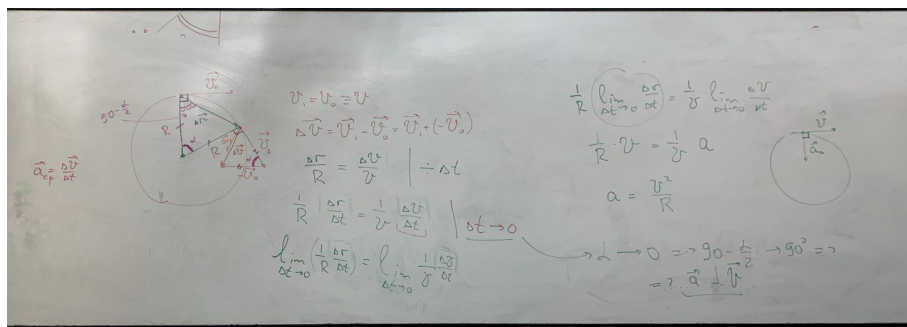 90-α/2
R
Δr⃗
v⃗₀
α
R
Δv⃗
v⃗₁
-v⃗₀
a⃗ср = Δv⃗/Δt
v₁ = v₀ ≡ v
Δv⃗ = v⃗₁ - v⃗₀ = v⃗₁ + (-v⃗₀)
Δr/R = Δv/v | ÷ Δt
1/R |Δr/Δt| = 1/v |Δv/Δt| | Δt → 0
lim Δt→0 (1/R |Δr/Δt|) = lim Δt→0 1/v |Δv/Δt|
1/R lim Δt→0 Δr/Δt = 1/v lim Δt→0 Δv/Δt
1/R · v = 1/v a
a = v²/R
α → 0 => 90 - α/2 → 90° =>
=> a⃗ ⊥ v⃗
v⃗
a⃗